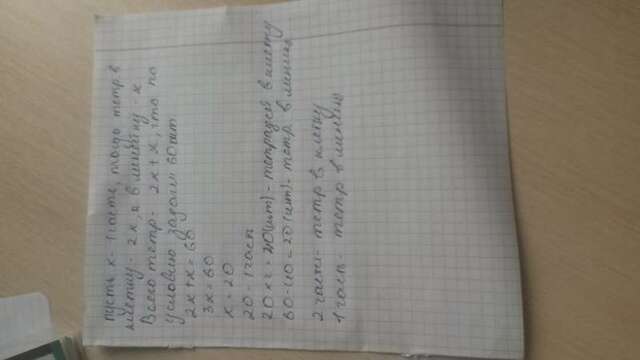 пусть x - 1 часть, тогда тетр. в
клетку - 2x, а в линейку - x
Всего тетр - 2x+x, что по
условию задачи 60шт
2x+x=60
3x=60
x=20
20 - 1 часть
20×2=40(шт) - тетрадей в клетку
60-40=20(шт) - тетр. в линию
2 части - тетр в клетку
1 часть - тетр в линию